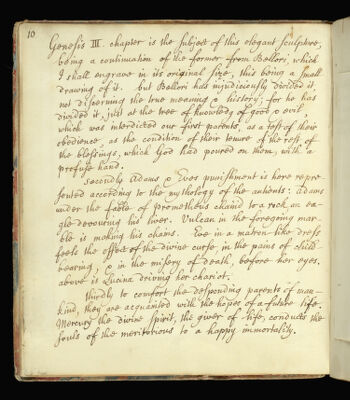 10
Genesis III. chapter is the subject of this elegant sculpture,
being a continuation of the former from Bellori, which
I shall engrave in its original size, this being a small
drawing of it. but Bellori has injudiciously divided it,
not discerning the true meaning & history; for he has
divided it, just at the tree of knowledg of good & evil,
which was interdicted our first parents, as a test of their
obedience, as the condition of their tenure of the rest, of
the blessings, which God had poured on them, with a
profuse hand.
Secondly Adams & Eves punishment is here repre-
sented according to the mythology of the antients: Adam
under the fable of prometheus chaind to a rock, an ea-
gle devouring his liver. Vulcan in the foregoing mar-
ble is making his chains. Eve in a matron like dress
feels the effect of the divine curse, in the pains of child
bearing, & in the misery of death, before her eyes.
above is Lucina driving her chariot.
thirdly to comfort the desponding parents of man-
kind, they are acquainted with the hopes of a future life.
Mercury the divine spirit, the giver of life, conducts the
souls of the meritorious to a happy immortality.